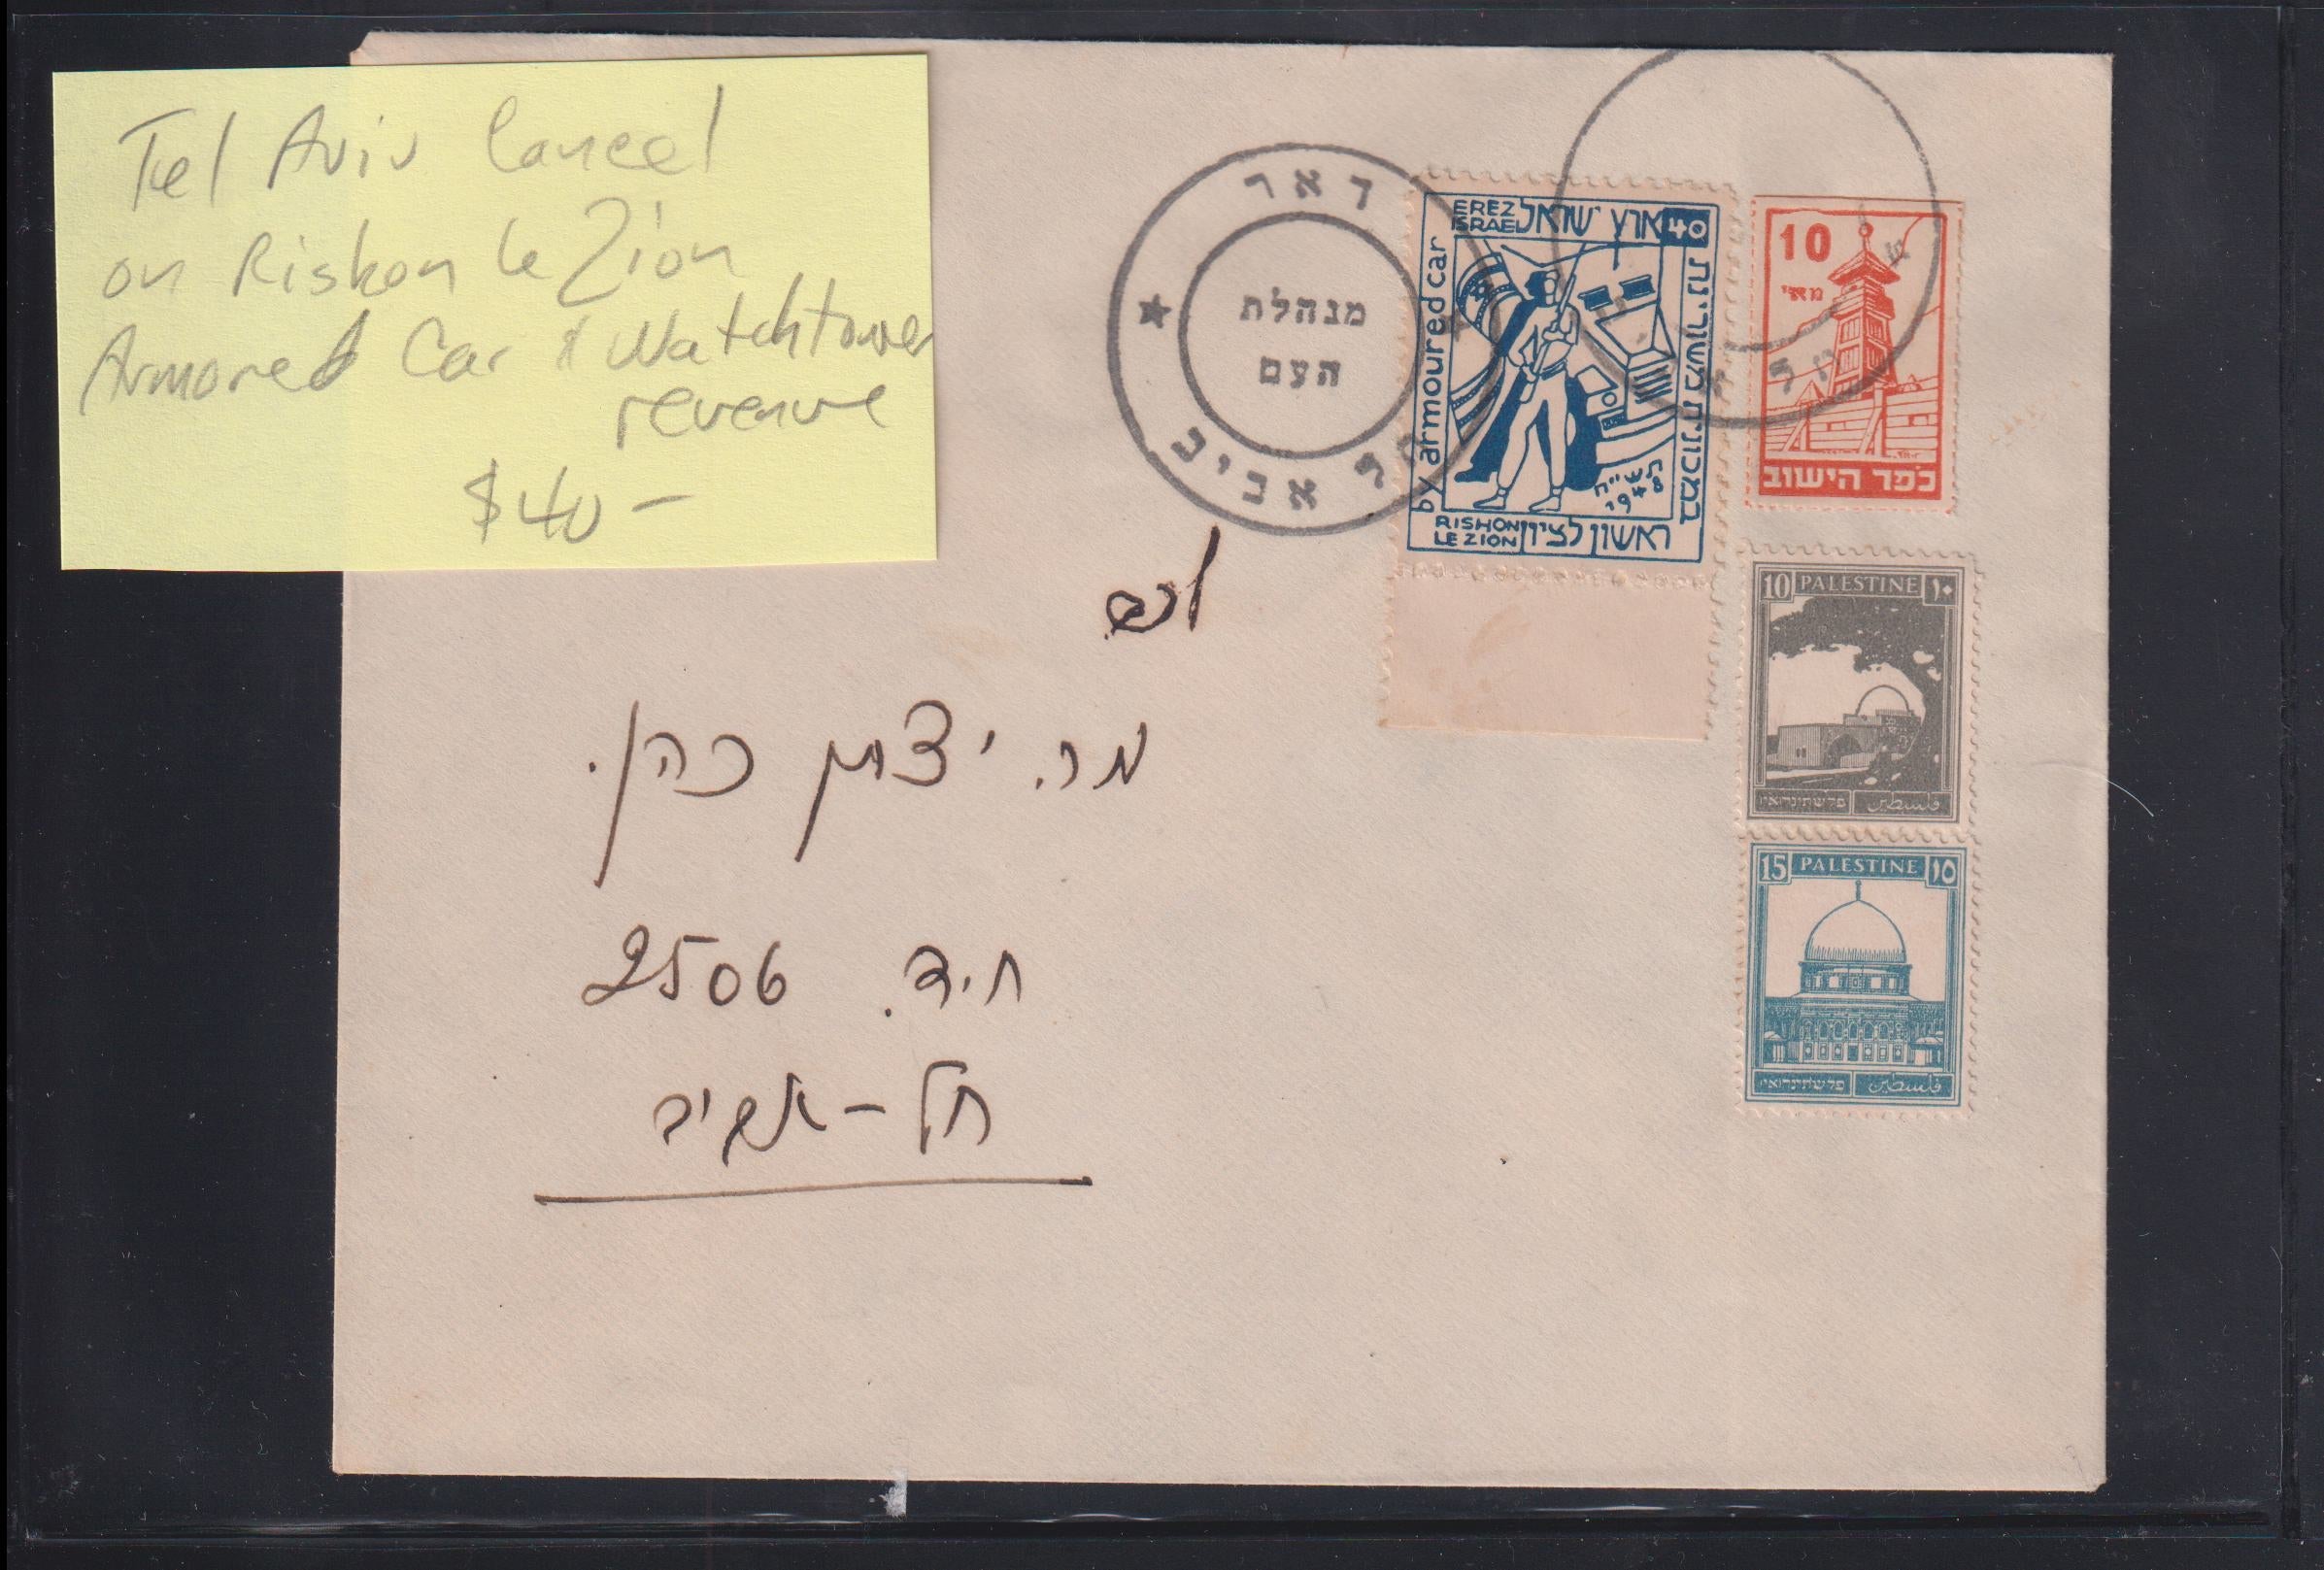 Tel Aviv Cancel
on Rishon le Zion
Armored Car & Watchtower
revenue
$40-
דאר
מנהלת
העם
תל אביב
EREZ
ISRAEL
ארץ ישראל
40
by armoured car
במכונית משוריינת
תש"ח
1948
RISHON
LE ZION
ראשון לציון
10
מא"י
כפר הישוב
10 PALESTINE ١٠
פלשתינה א"י
فلسطين
15 PALESTINE ١٥
פלשתינה א"י
فلسطين
לכב'
מר. יצחק כהן.
ת.ד. 2506
תל-אביב